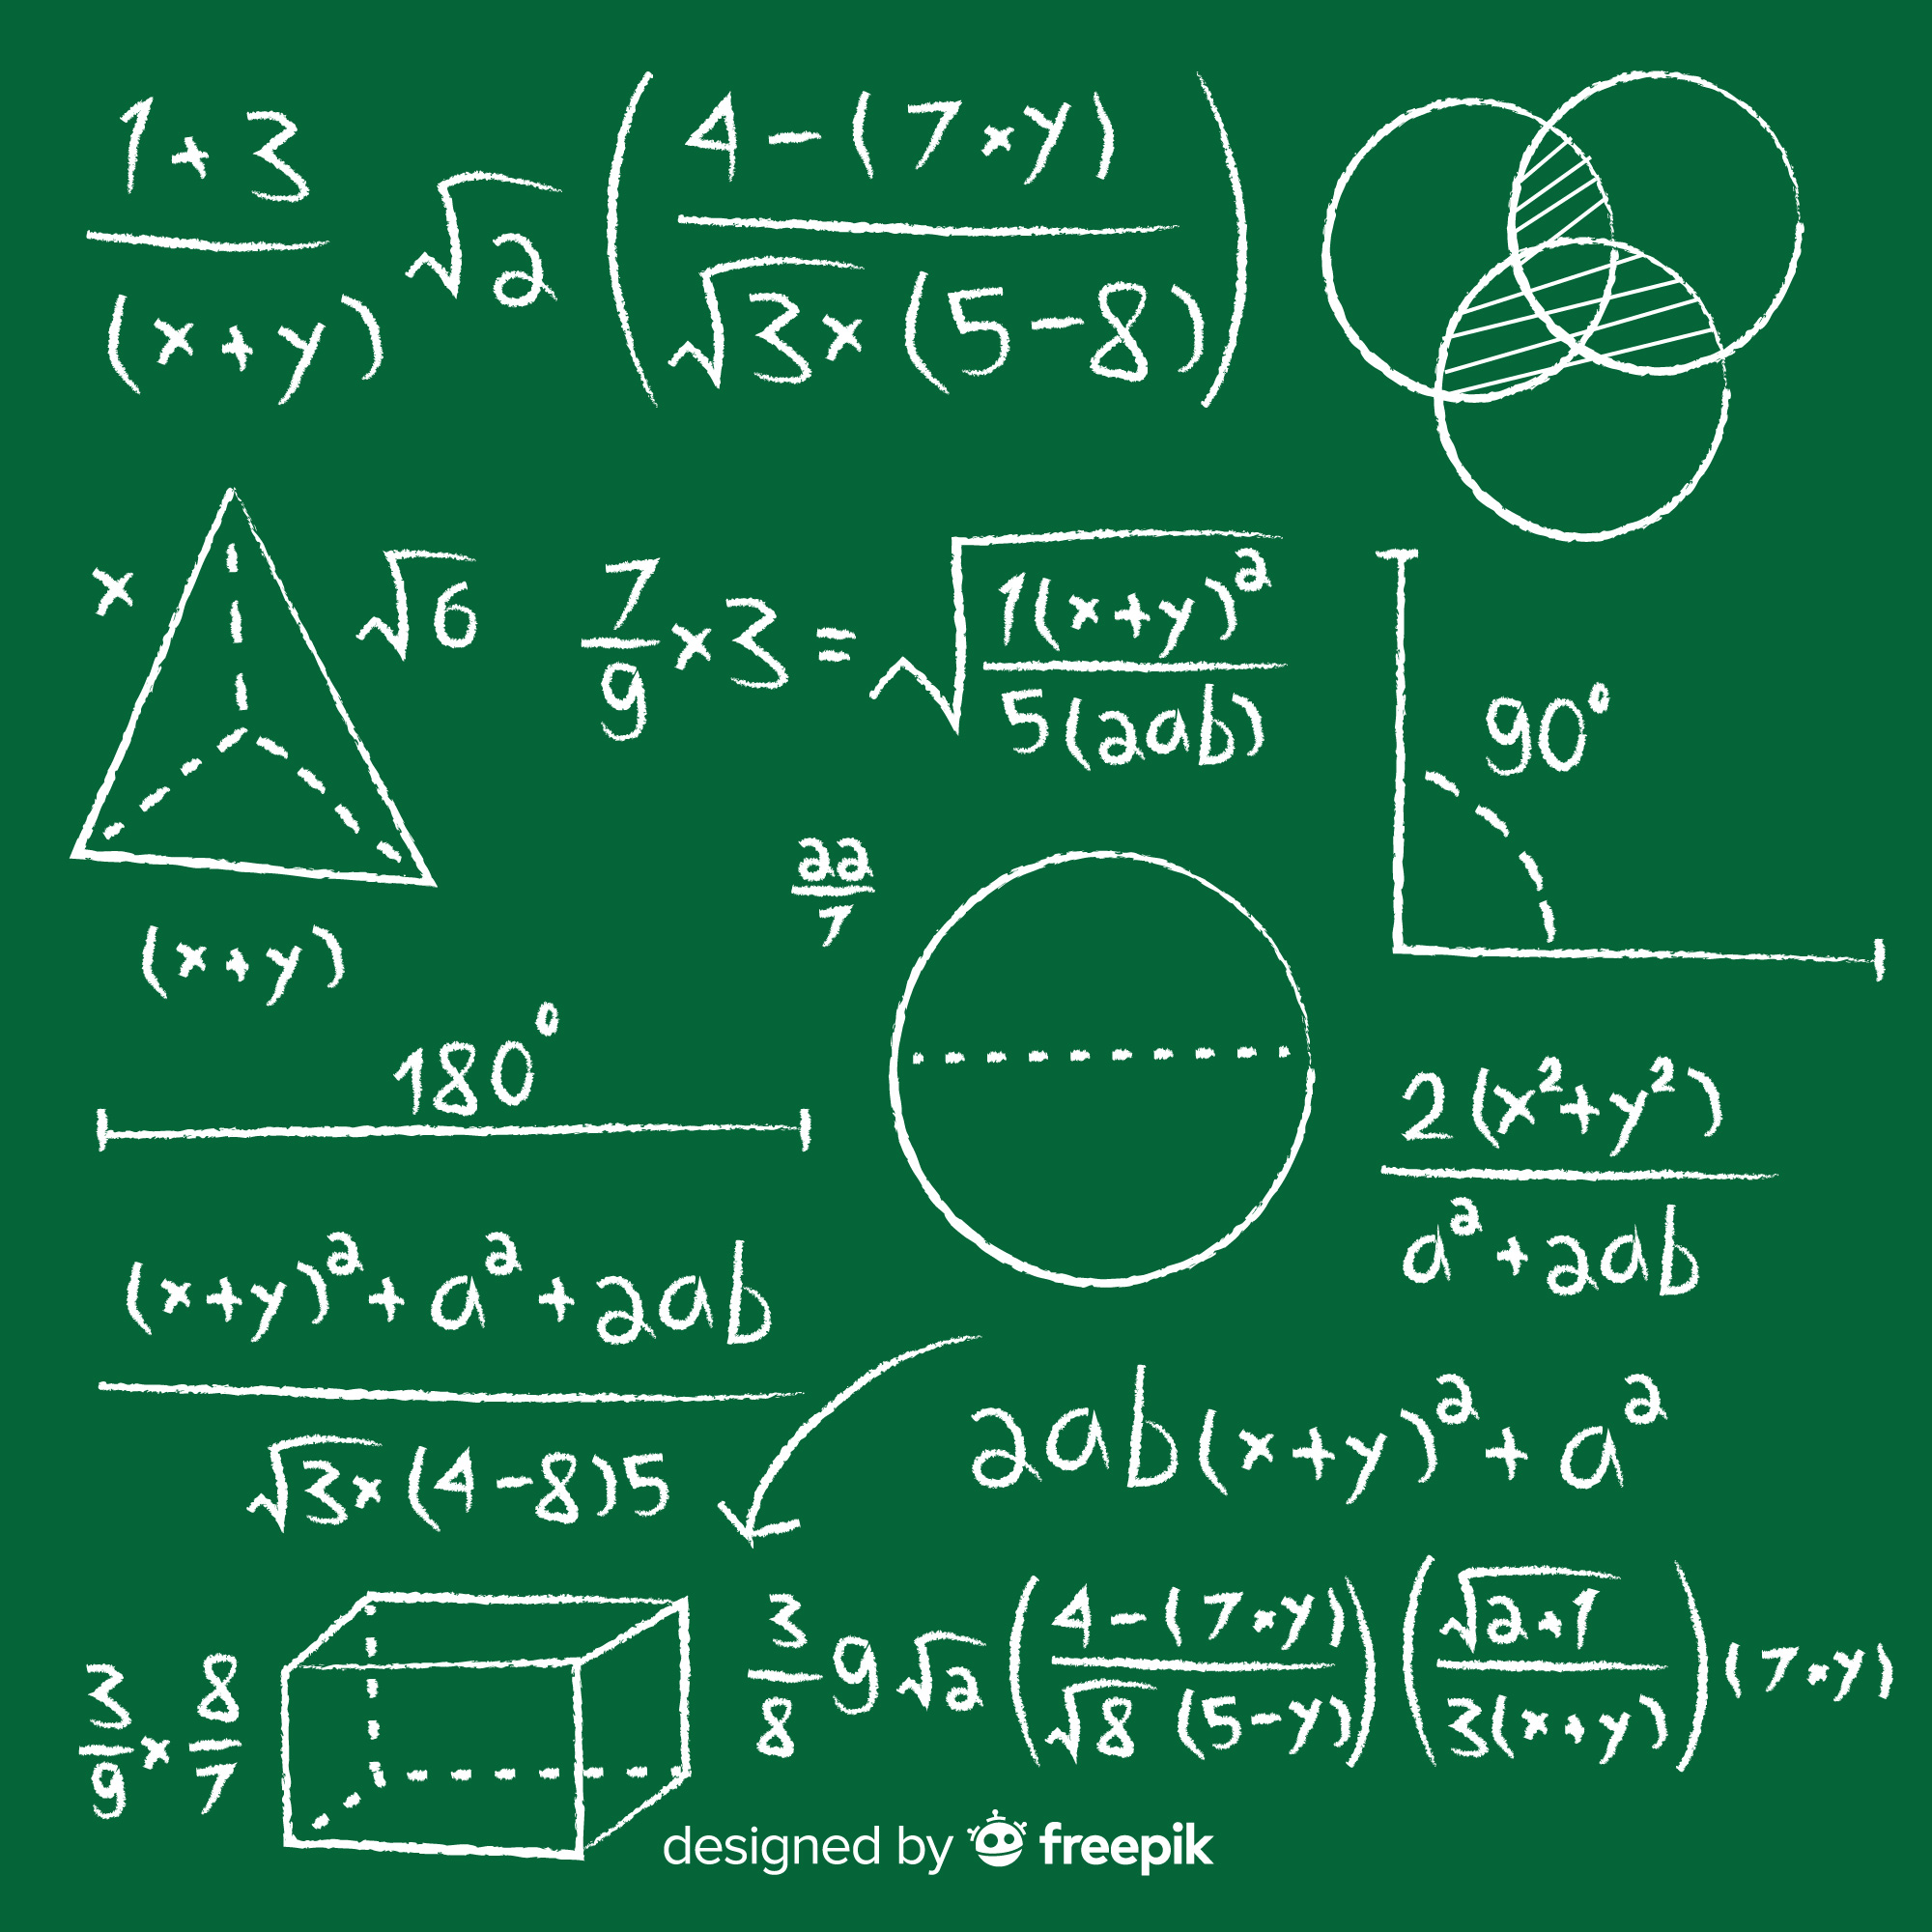 1+3/(x+y) √2 (4-(7×y)/√3×(5-8))
x √6 7/9×3=√1(x+y)²/5(2ab)
90°
22/7
(x+y)
180°
2(x²+y²)/a²+2ab
(x+y)²+a²+2ab/√3×(4-8)5
2ab(x+y)²+a²
3/9×8/7
3/8 9√2 (4-(7×y)/√8(5-y)) (√2+1/3(x+y)) (7×y)
designed by freepik